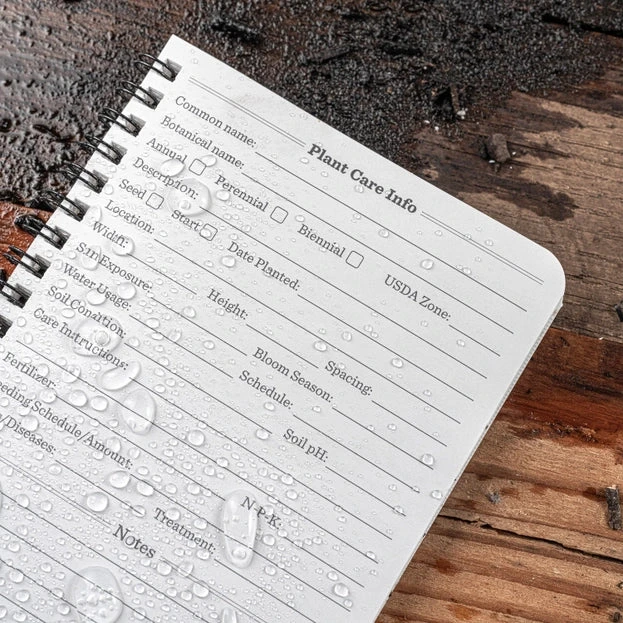 Plant Care Info
Common name:
Botanical name:
Annual Perennial Biennial USDA Zone:
Description:
Seed Start Date Planted:
Location:
Width: Height: Spacing:
Sun Exposure: Bloom Season:
Water Usage: Schedule:
Soil Condition: Soil pH:
Care Instructions:
Fertilizer: N-P-K:
Schedule/Amount:
Diseases: Treatment:
Notes